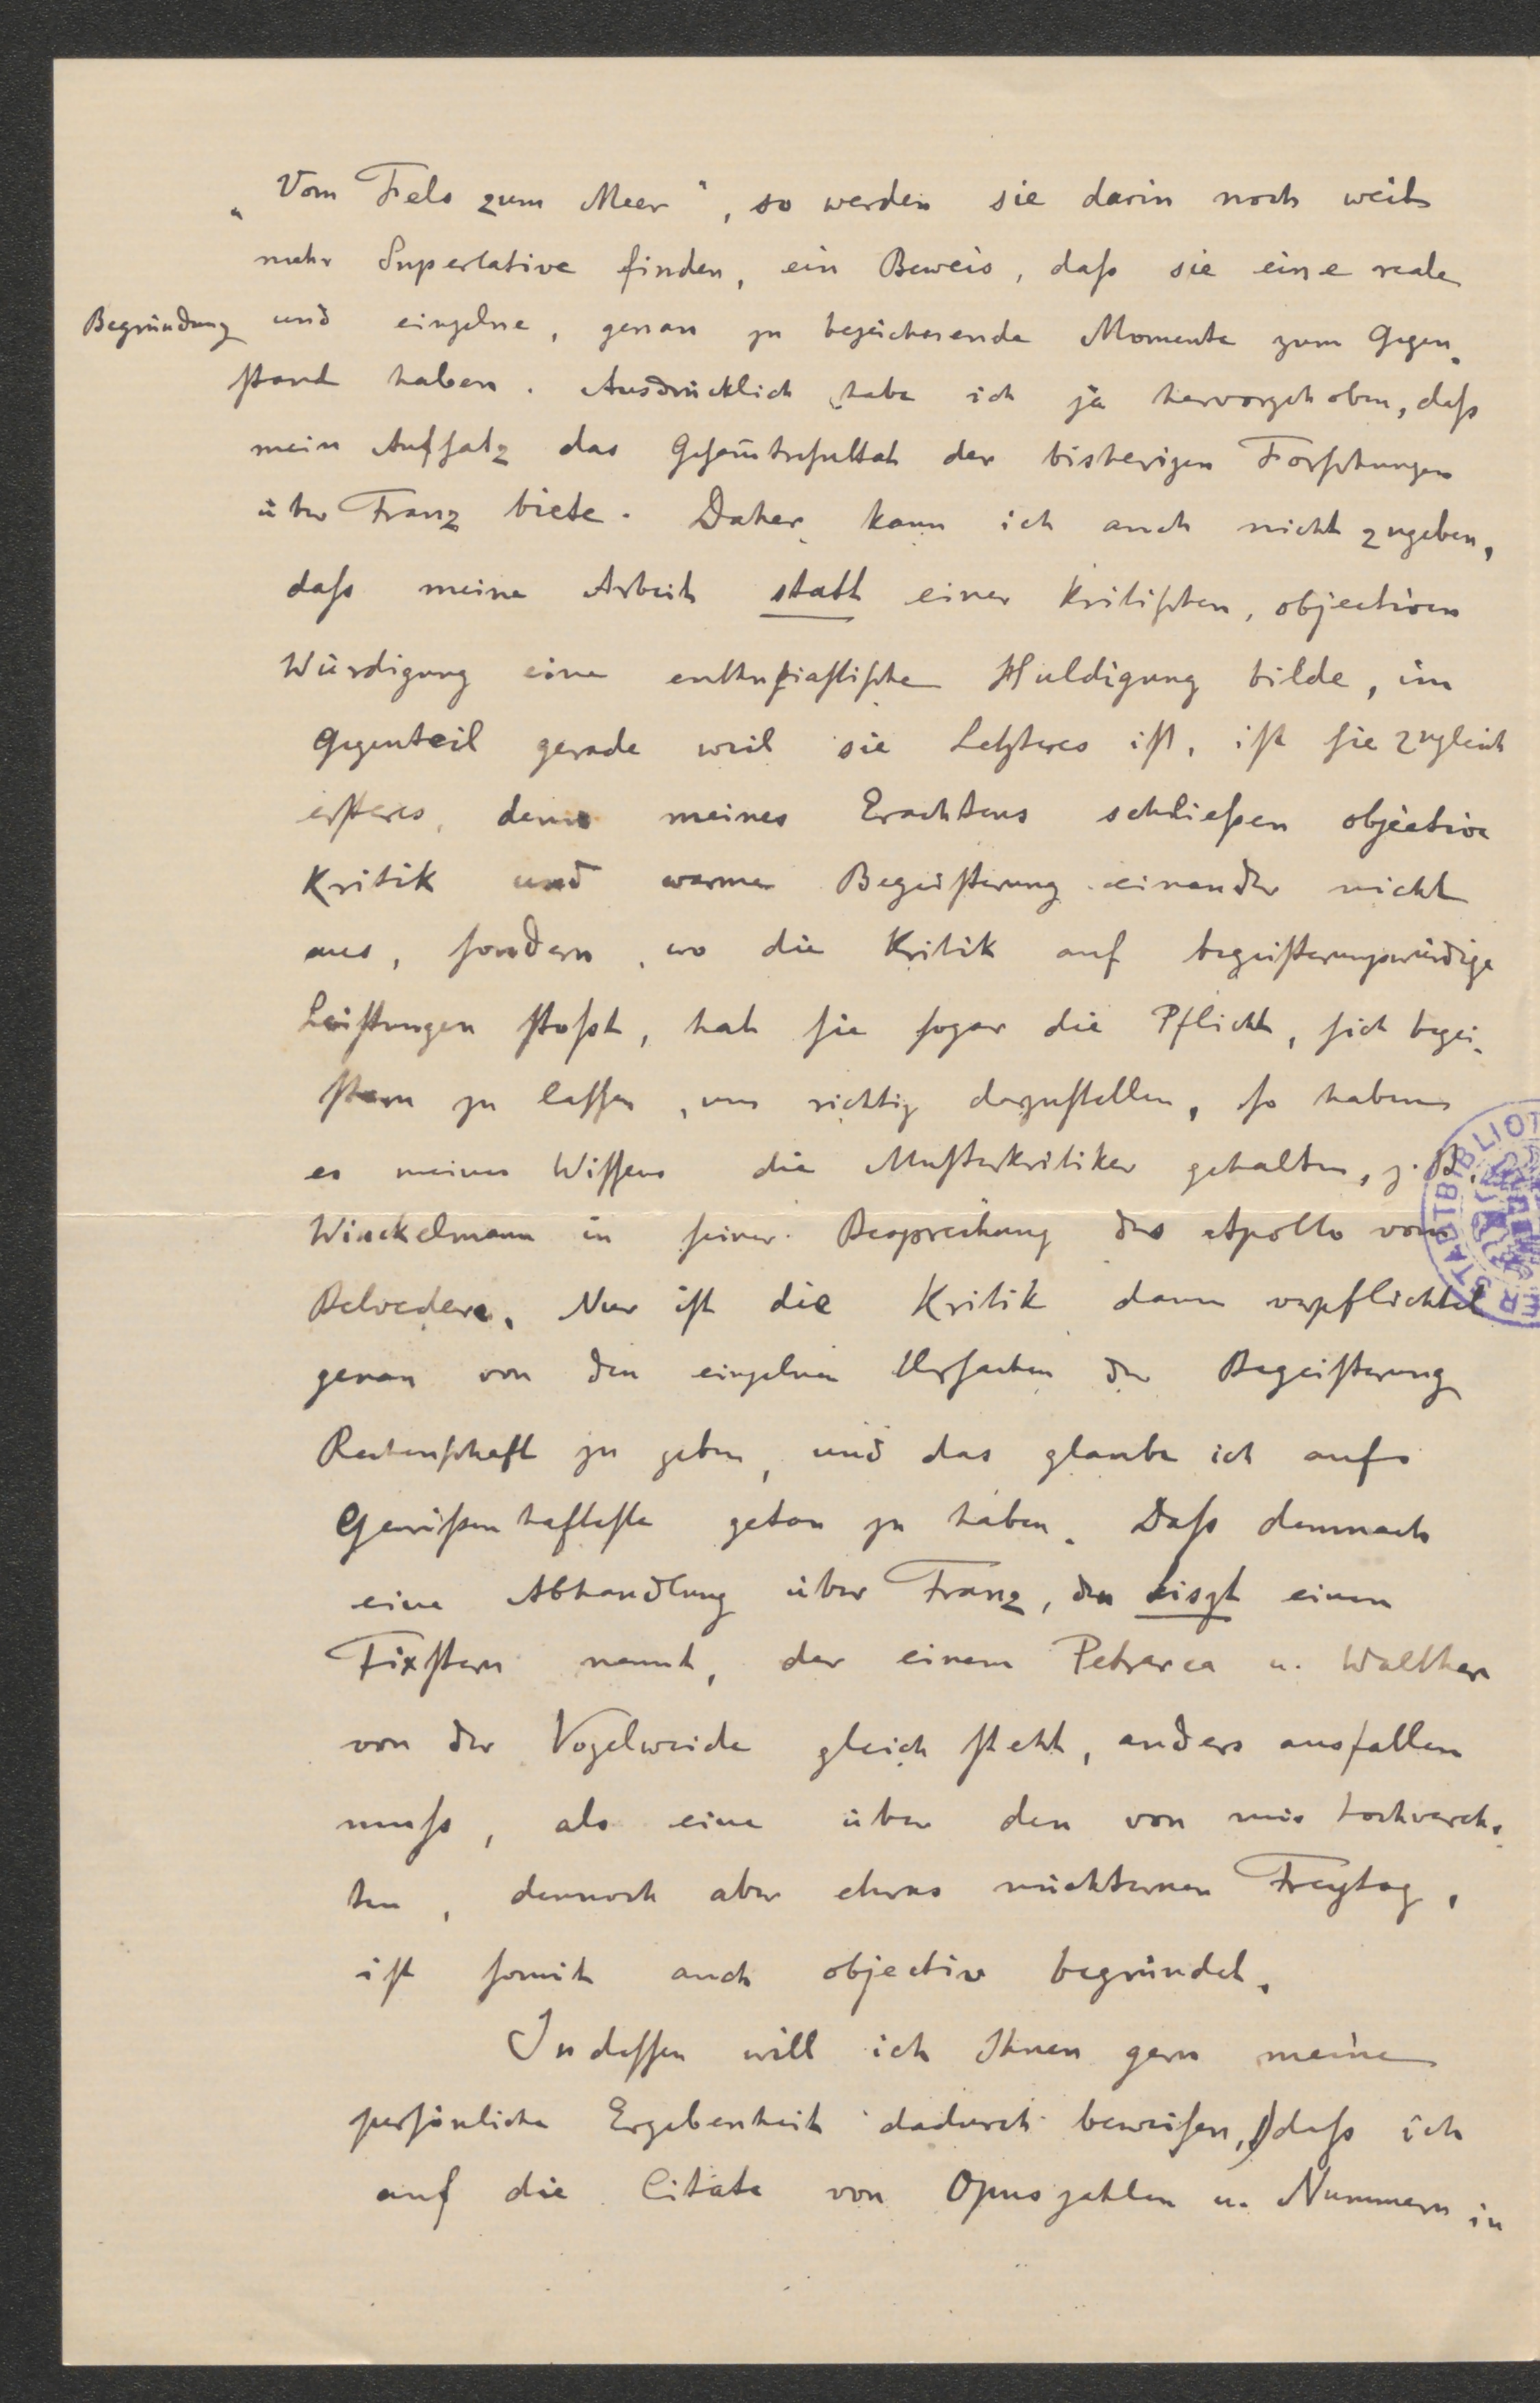 „Vom Fels zum Meer“, so werden sie darin noch weit
mehr Superlative finden, ein Beweis, daß sie eine reale
Begründung und einzelne, genau zu bezeichnende Momente zum Gegen-
stand haben. Ausdrücklich habe ich ja hervorgehoben, daß
mein Aufsatz das Gesam̄tresultat der bisherigen Forschungen
über Franz biete. Daher kann ich auch nicht zugeben,
daß meine Arbeit statt einer kritischen, objectiven
Würdigung eine enthusiastische Huldigung bilde, im
Gegenteil gerade weil sie Letzteres ist, ist sie zugleich
ersteres, denn meines Erachtens schließen objective
Kritik und warme Begeisterung einander nicht
aus, sondern, wo die Kritik auf begeisterungswürdige
Leistungen stoßt, hat sie sogar die Pflicht, sich begei-
stern zu lassen, um richtig darzustellen, so haben
es meines Wissens die Musterkritiker gehalten, z. B.
Winckelmann in seiner Besprechung des Apollo vom
Belvedere. Nur ist die Kritik dann verpflichtet
genau von den einzelnen Ursachen der Begeisterung
Rechenschaft zu geben, und das glaube ich aufs
Gewißenhafteste getan zu haben. Daß demnach
eine Abhandlung über Franz, den Liszt einen
Fixstern nennt, der einem Petrarca u. Walther
von der Vogelweide gleich steht, anders ausfallen
muß, als eine über den von mir hochverehr-
ten, dennoch aber etwas nüchternen Freytag,
ist somit auch objectiv begründet.
Indessen will ich Ihnen gern meine
persönliche Ergebenheit dadurch beweisen, daß ich
auf die Citate von Opuszahlen u. Nummern in
STADTBIBLIOT